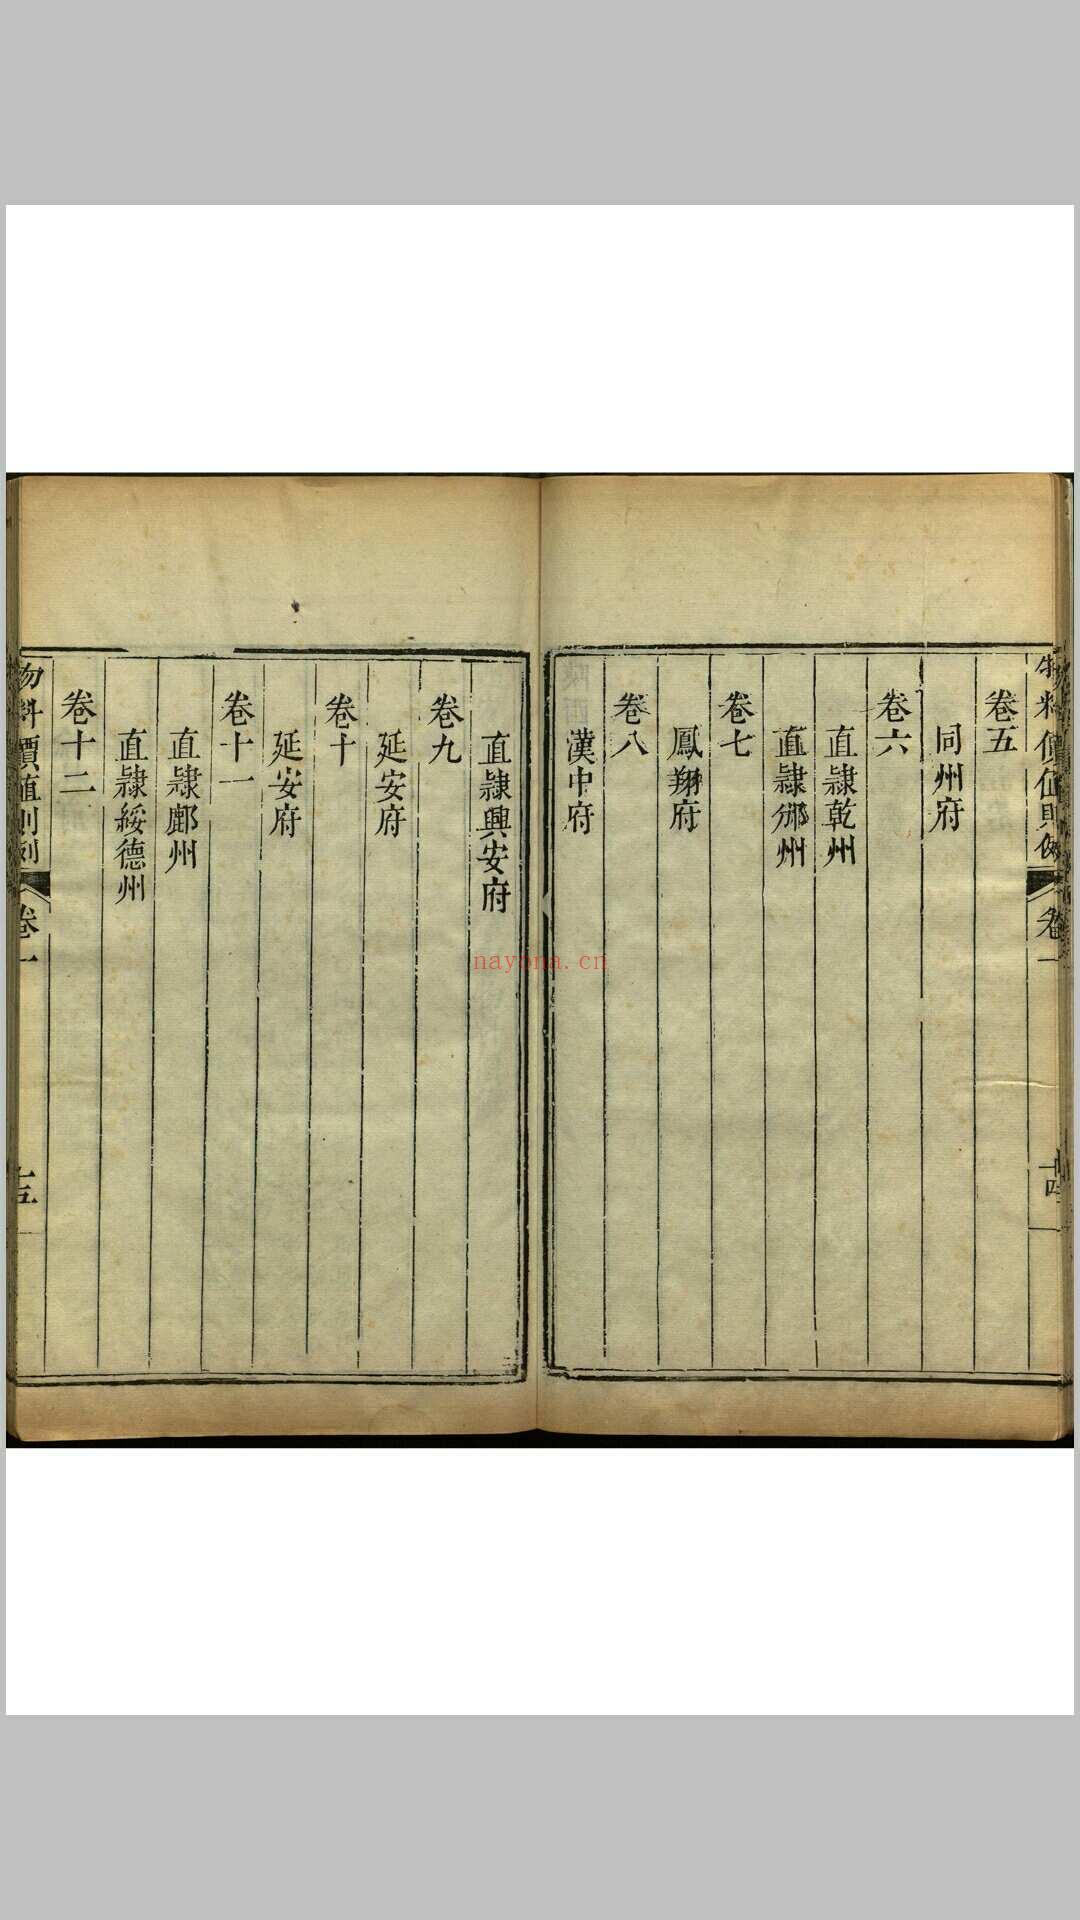 物料價值則例 卷一 十四
卷五
同州府
卷六
直隷乾州
直隷邠州
卷七
鳳翔府
卷八
漢中府
直隷興安府
卷九
延安府
卷十
延安府
卷十一
直隷鄜州
直隷綏德州
卷十二
物料價值則例 卷一 十五
nayona.cn